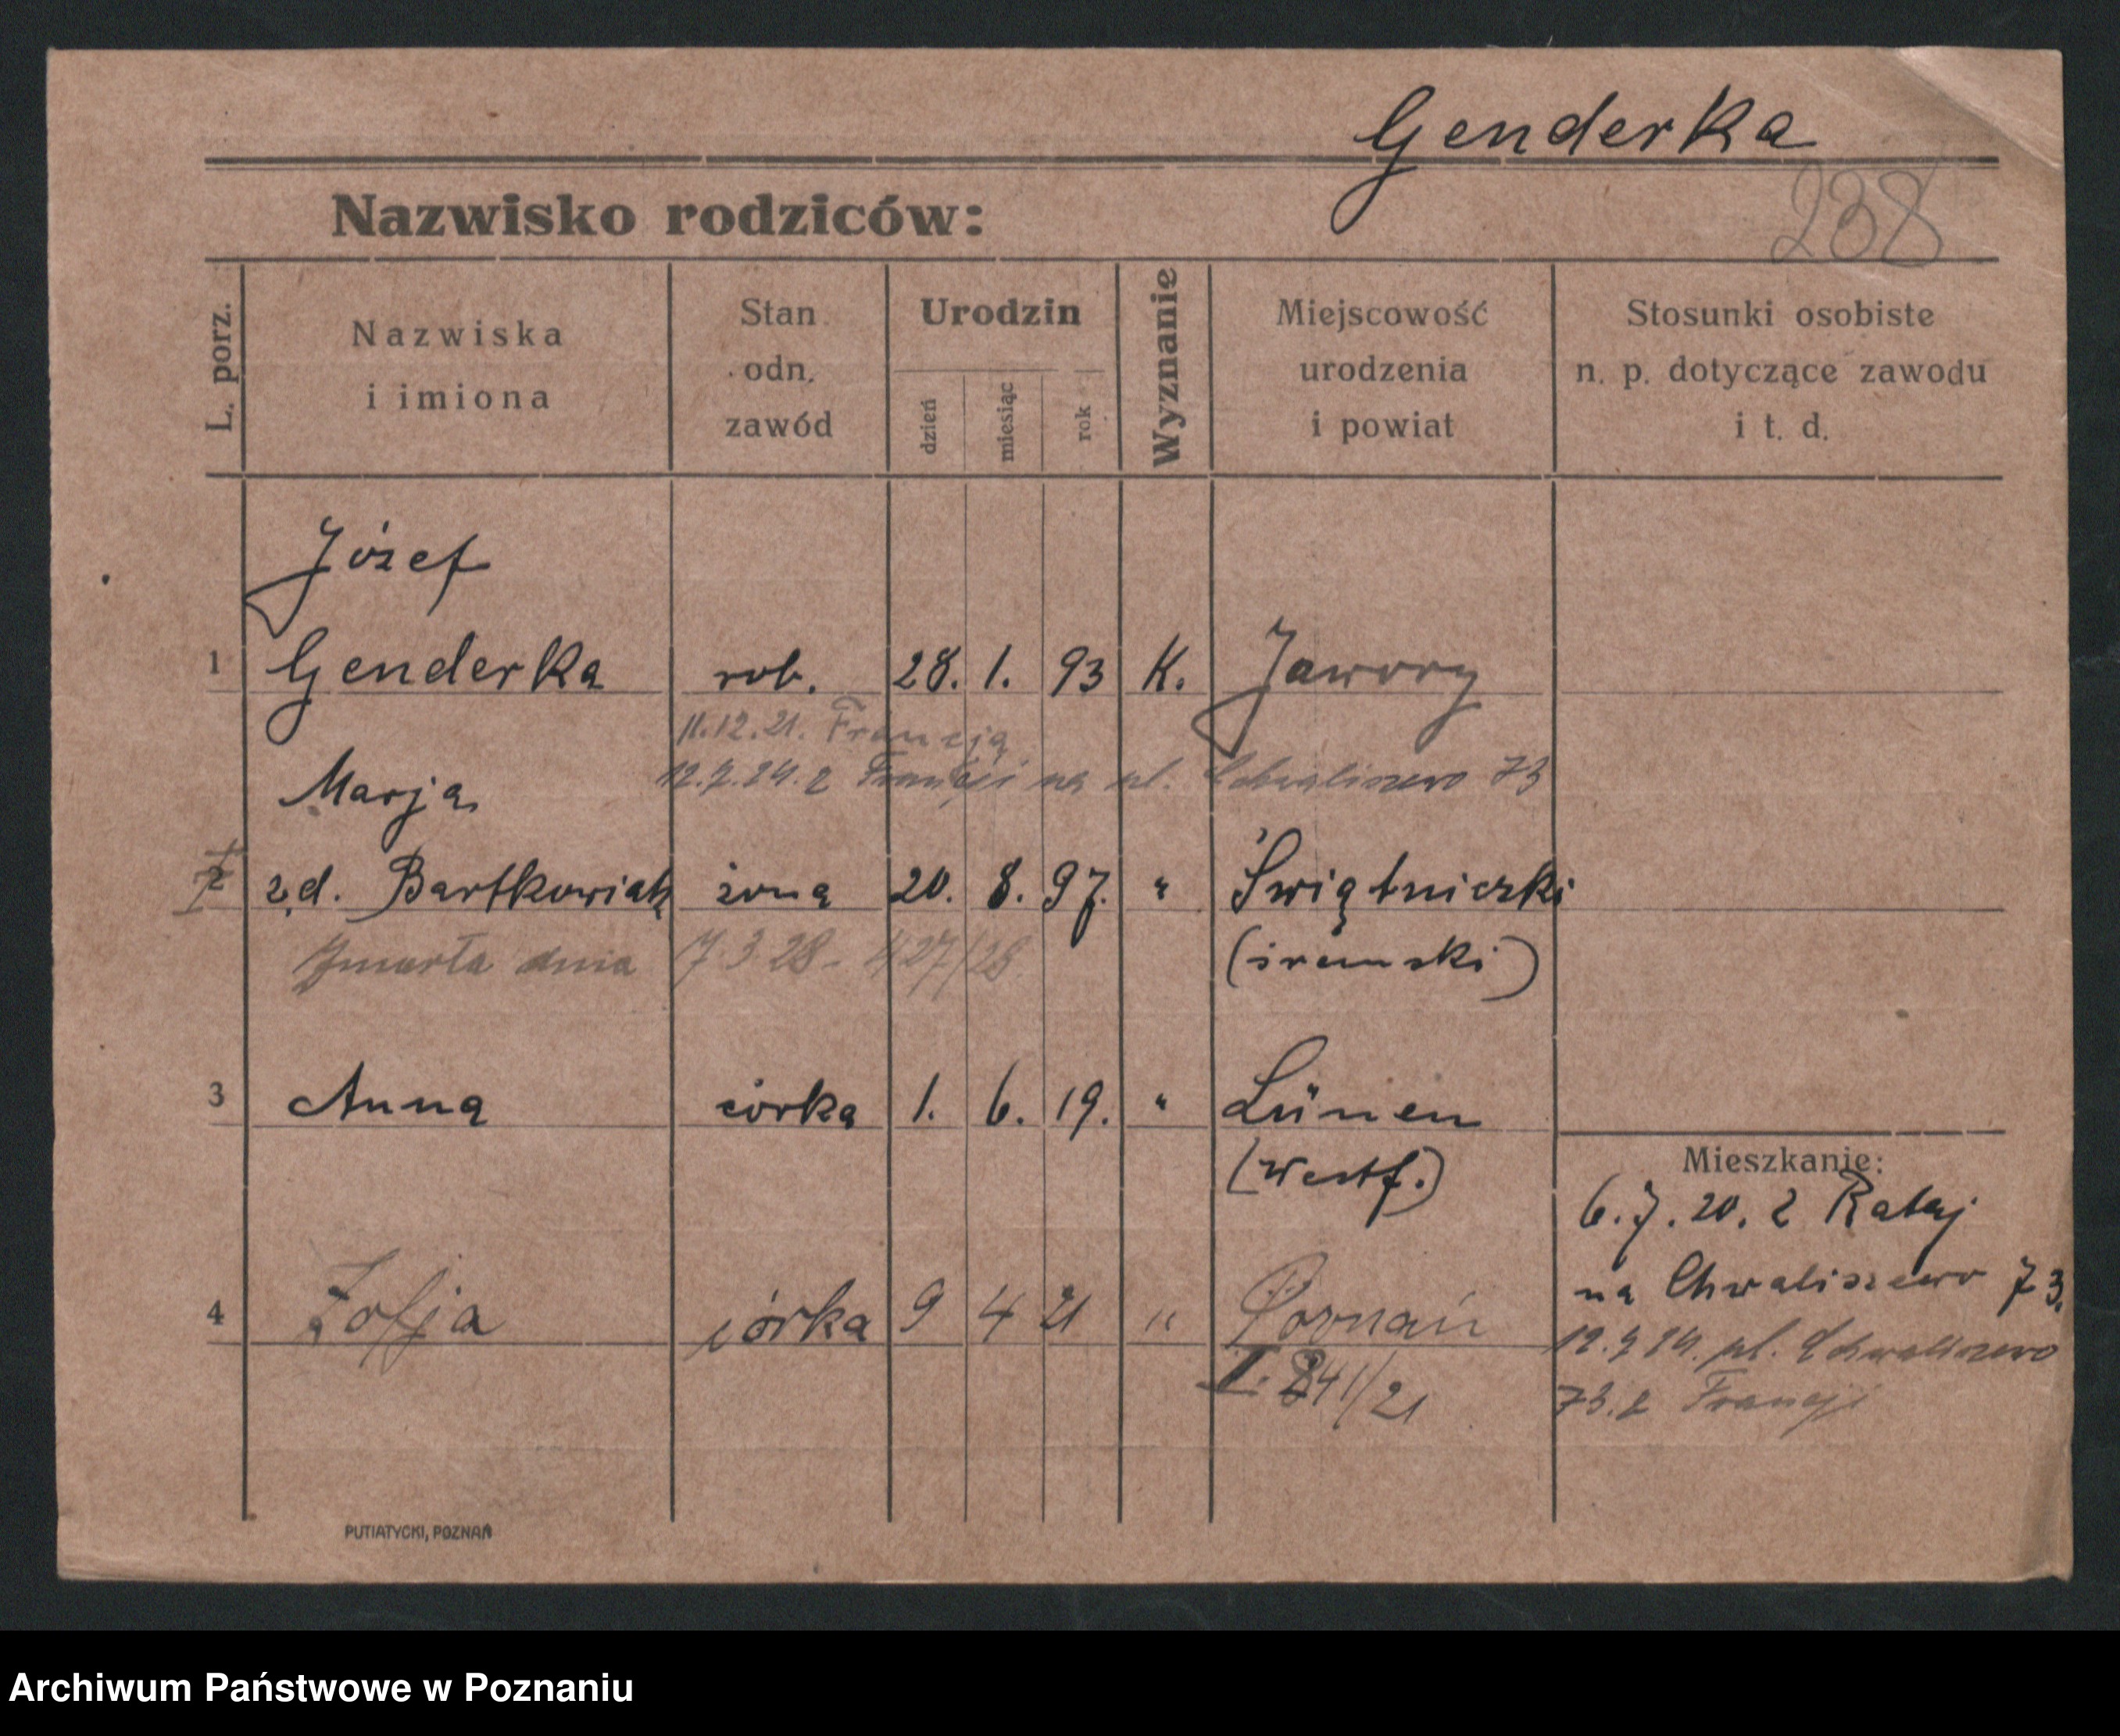 Genderka
238
Nazwisko rodziców:
L. porz.
Nazwiska i imiona
Stan odn. zawód
Urodzin
dzień miesiąc rok
Wyznanie
Miejscowość urodzenia i powiat
Stosunki osobiste n. p. dotyczące zawodu i t. d.
Józef
1 Genderka rob. 28. 1. 93 K. Jawory
11.12.21. Francją
12.7.24. z Francji na pl. Chwaliszewo 73
Marja
2 z, d. Bartkowiak żona 20. 8. 97. " Świątniczki
Zmarła dnia 7.3.28 - 427/28 (śremski)
3 Anna córka 1. 6. 19. " Lünen
(Westf.)
Mieszkanie:
6.7.20. z Rataj
na Chwaliszewo 73.
4 Zofja córka 9 4 21 " Poznań
12.7.24. pl. Chwaliszewo
I. 841/21
73. z Francji
PUTIATYCKI, POZNAŃ
Archiwum Państwowe w Poznaniu